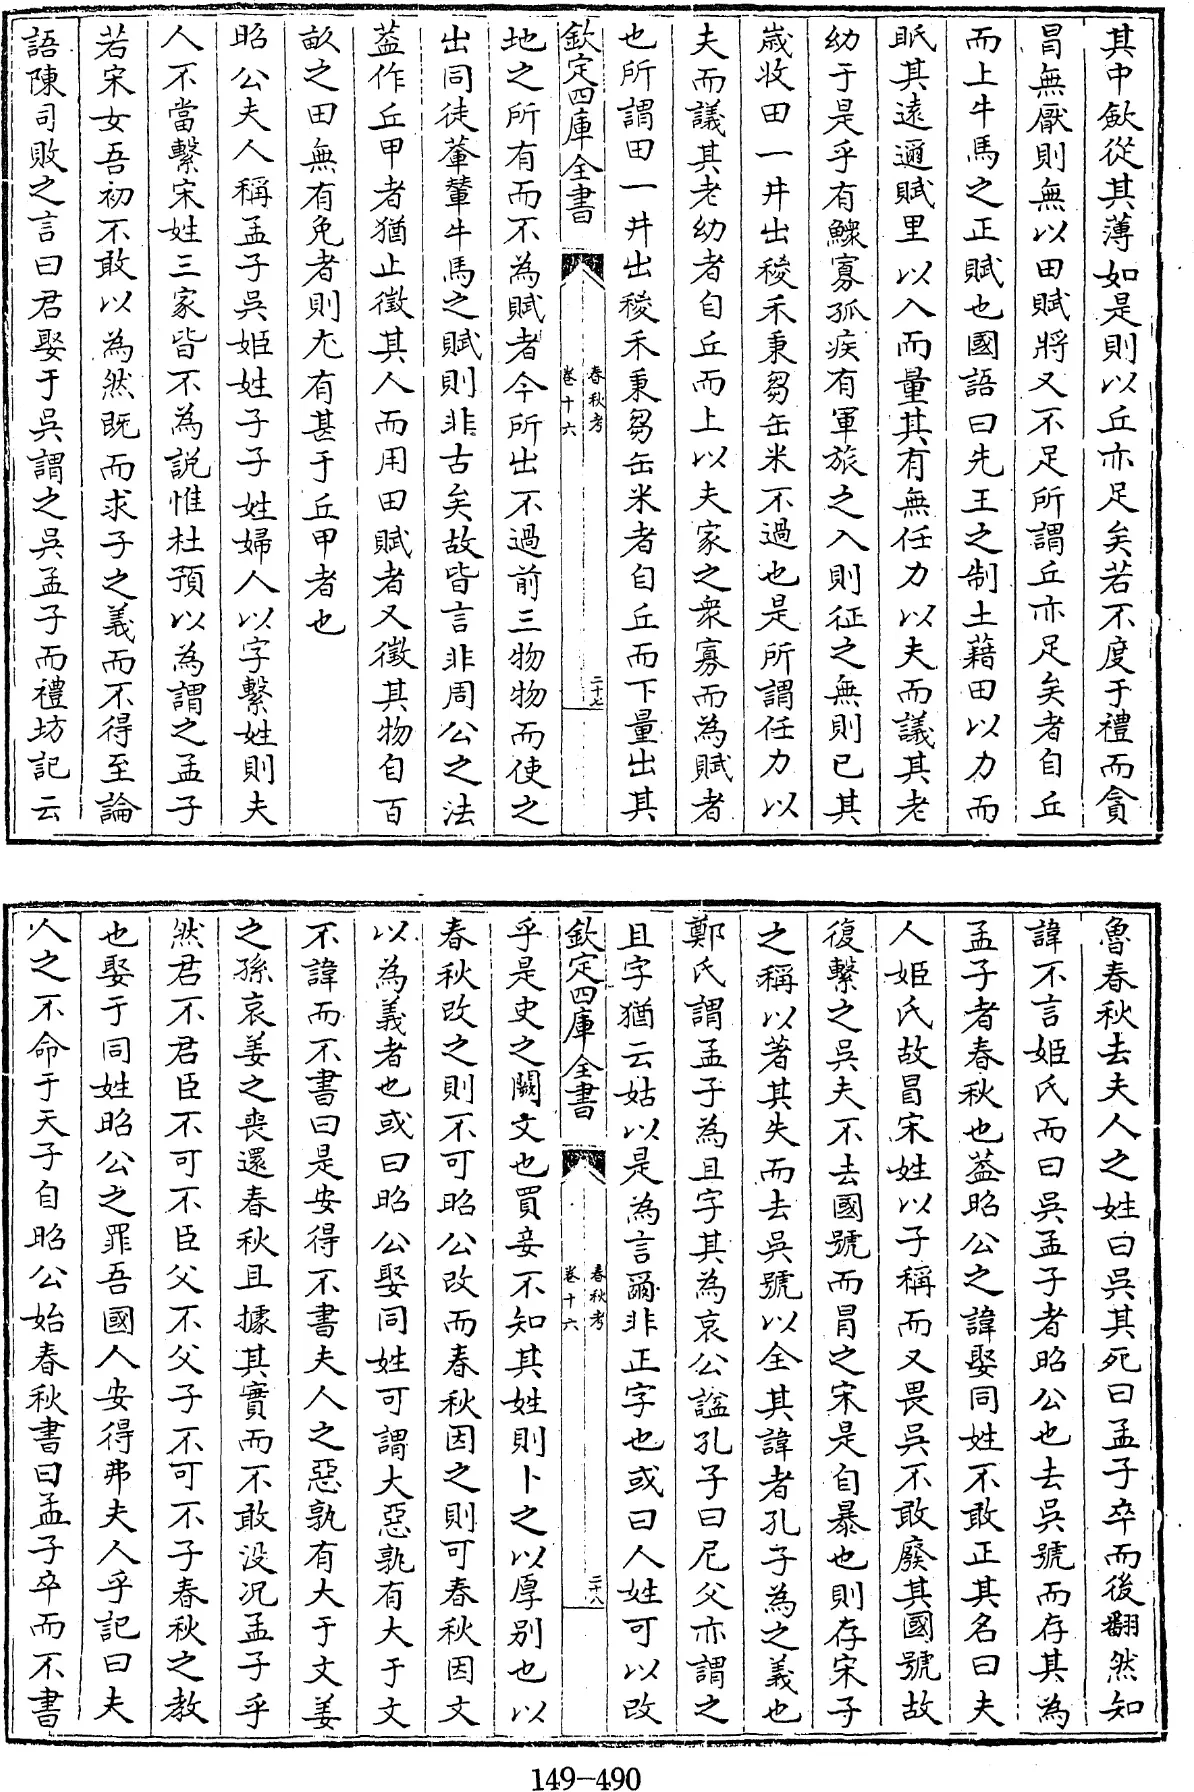 其中歛從其薄如是則以丘亦足矣若不度于禮而貪
冒無厭則無以田賦將又不足所謂丘亦足矣者自丘
而上牛馬之正賦也國語曰先王之制土藉田以力而
眡其遠邇賦里以入而量其有無任力以夫而議其老
幼于是乎有鰥寡孤疾有軍旅之入則征之無則已其
歲收田一井出稯禾秉芻缶米不過也是所謂任力以
夫而議其老幼者自丘而上以夫家之衆寡而為賦者
也所謂田一井出稯禾秉芻缶米者自丘而下量出其
欽定四庫全書
春秋考
卷十六
二十七
地之所有而不為賦者今所出不過前三物物而使之
出同徒輂輦牛馬之賦則非古矣故皆言非周公之法
葢作丘甲者猶止徵其人而用田賦者又徵其物自百
畝之田無有免者則尤有甚于丘甲者也
昭公夫人稱孟子吳姬姓子子姓婦人以字繫姓則夫
人不當繫宋姓三家皆不為説惟杜預以為謂之孟子
若宋女吾初不敢以為然既而求子之義而不得至論
語陳司敗之言曰君娶于吳謂之吳孟子而禮坊記云
魯春秋去夫人之姓曰吳其死曰孟子卒而後翻然知
諱不言姬氏而曰吳孟子者昭公也去吳號而存其為
孟子者春秋也葢昭公之諱娶同姓不敢正其名曰夫
人姬氏故冒宋姓以子稱而又畏吳不敢廢其國號故
復繫之吳夫不去國號而冒之宋是自暴也則存宋子
之稱以著其失而去吳號以全其諱者孔子為之義也
鄭氏謂孟子為且字其為哀公諡孔子曰尼父亦謂之
且字猶云姑以是為言爾非正字也或曰人姓可以改
欽定四庫全書
春秋考
卷十六
二十八
乎是史之闕文也買妾不知其姓則卜之以厚别也以
春秋改之則不可昭公改而春秋因之則可春秋因文
以為義者也或曰昭公娶同姓可謂大惡孰有大于文
不諱而不書曰是安得不書夫人之惡孰有大于文姜
之孫哀姜之喪還春秋且據其實而不敢没况孟子乎
然君不君臣不可不臣父不父子不可不子春秋之教
也娶于同姓昭公之罪吾國人安得弗夫人乎記曰夫
人之不命于天子自昭公始春秋書曰孟子卒而不書
149-490